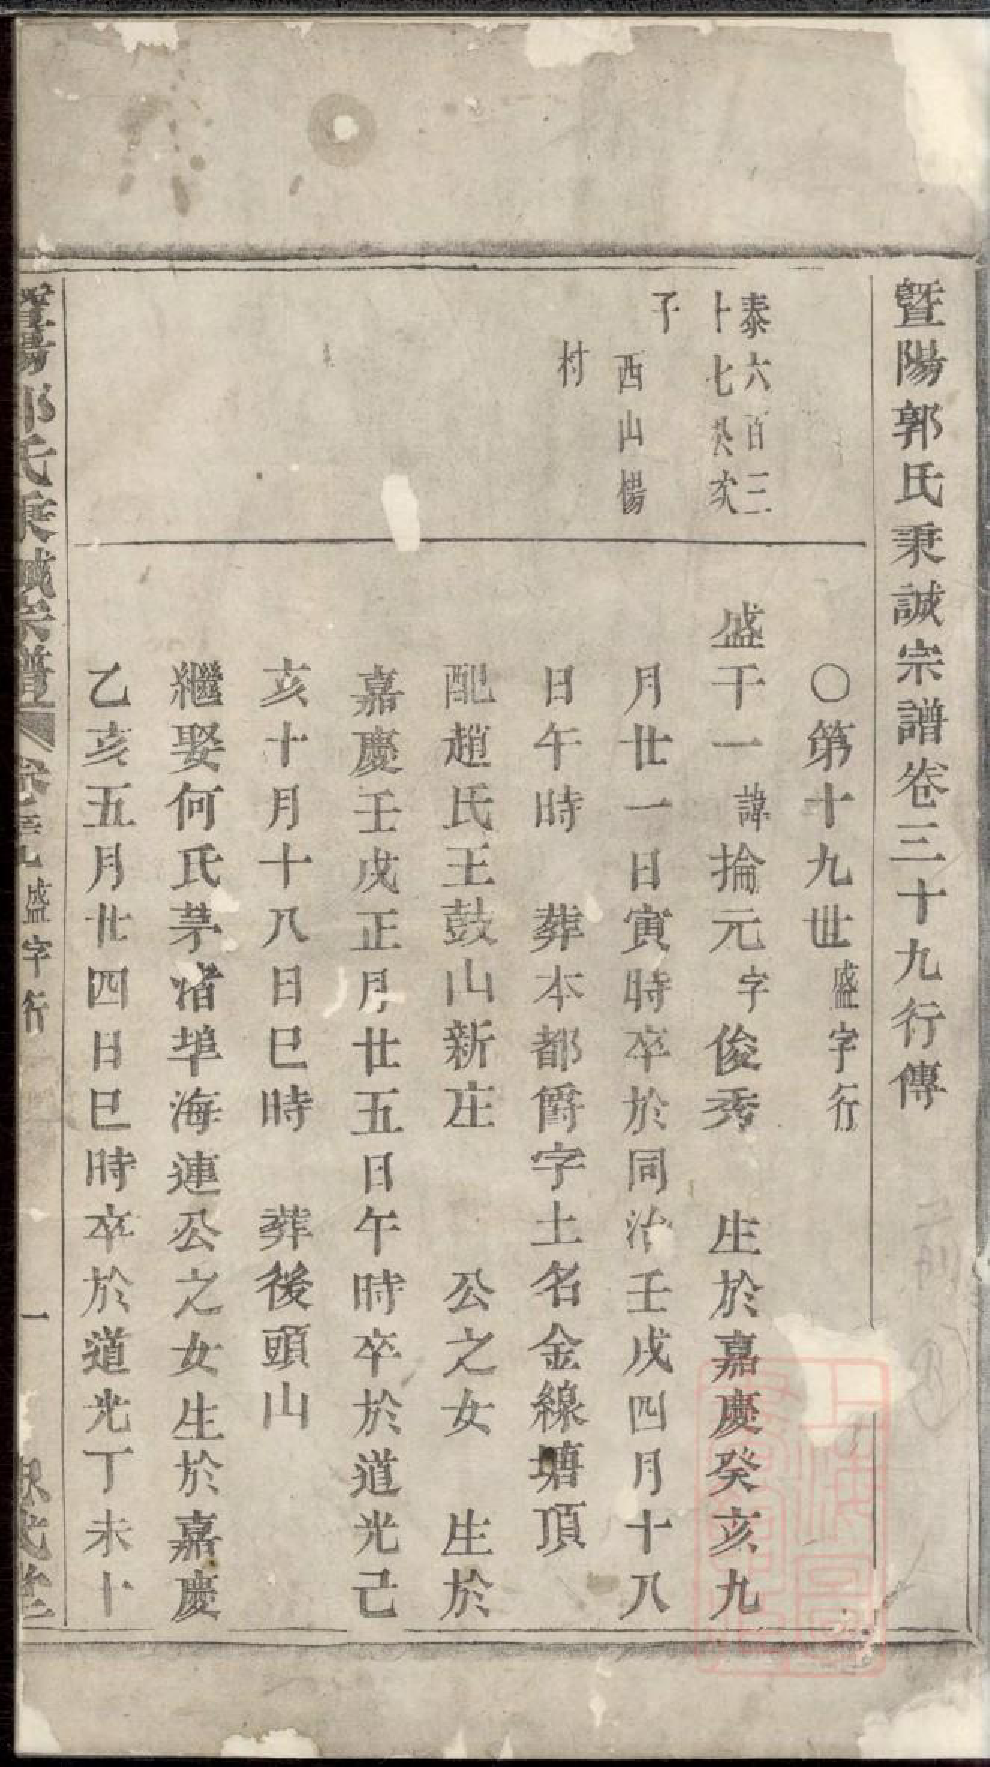 暨陽郭氏秉誠宗譜卷三十九行傳
〇第十九世盛字行
泰六百三
十七癸次
子
西山楊
村
盛干一諱掄元字俊秀 生於嘉慶癸亥九
月廿一日寅時卒於同治壬戌四月十八
日午時 葬本都爵字土名金線塘頂
配趙氏王鼓山新庄 公之女 生於
嘉慶壬戌正月廿五日午時卒於道光己
亥十月十八日巳時 葬後頭山
繼娶何氏茅渚埠海連公之女生於嘉慶
乙亥五月廿四日巳時卒於道光丁未十
暨陽郭氏秉誠宗譜 盛字行 一